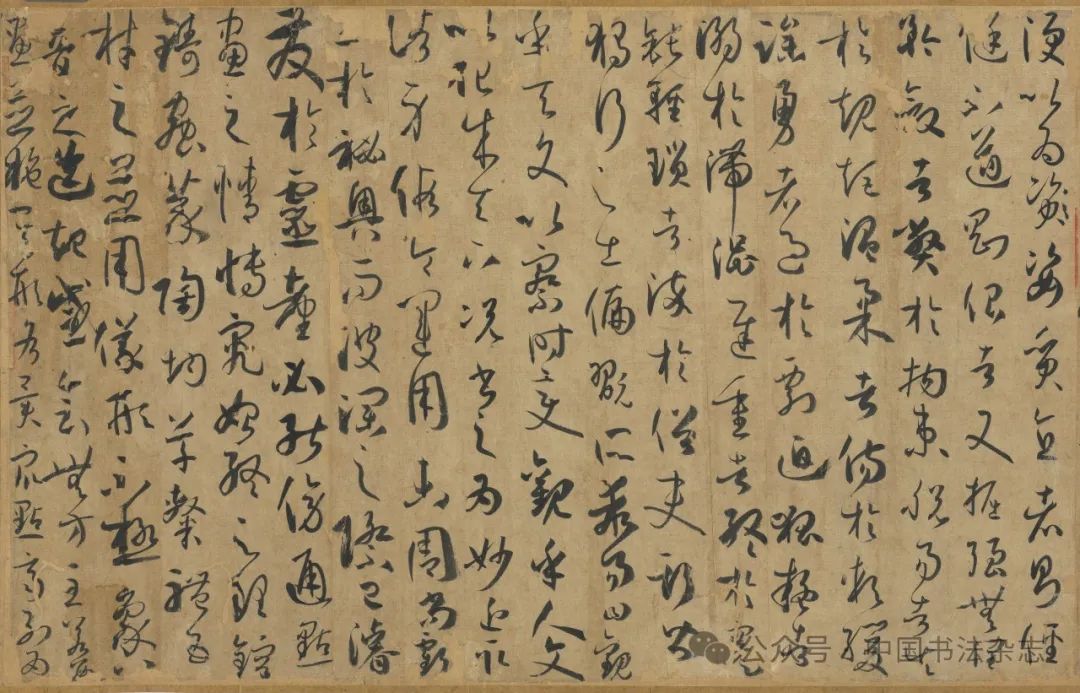 便以為姿質直者則徑
侹不遒剛佷者又掘強無潤
矜斂者弊於拘束脫易者失
於規矩溫柔者傷於軟緩
躁勇者過於剽迫狐疑者
溺於滯澀遲重者終於蹇
鈍輕瑣者淬於俗吏斯皆
獨行之士偏翫所乖易曰觀
乎天文以察時變觀乎人文
以化成天下況書之為妙近取
諸身假令運用未周尚虧
工於祕奧而波瀾之際已濬
發於靈臺必能傍通點
畫之情博究始終之理鎔
鑄蟲篆陶均草隸體五
材之並用儀形不極象八
音之迭起感會無方至若數
畫並施其形各異眾點齊列為
公众号 · 中国书法杂志